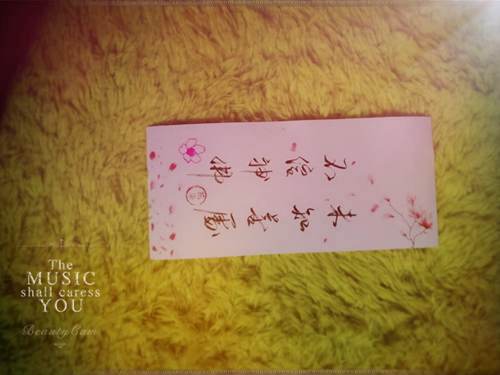 知善
不信神佛
The
MUSIC
shall caress
YOU
BeautyCam